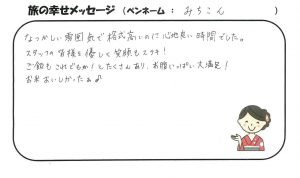 旅の幸せメッセージ（ペンネーム：みちこん）
なつかしい雰囲気で格式高いのに心地良い時間でした。
スタッフの皆様も優しく笑顔もステキ！
ご飯もこれでもか！とたくさんあり、お腹いっぱい大満足！
お米おいしかったぁ♪